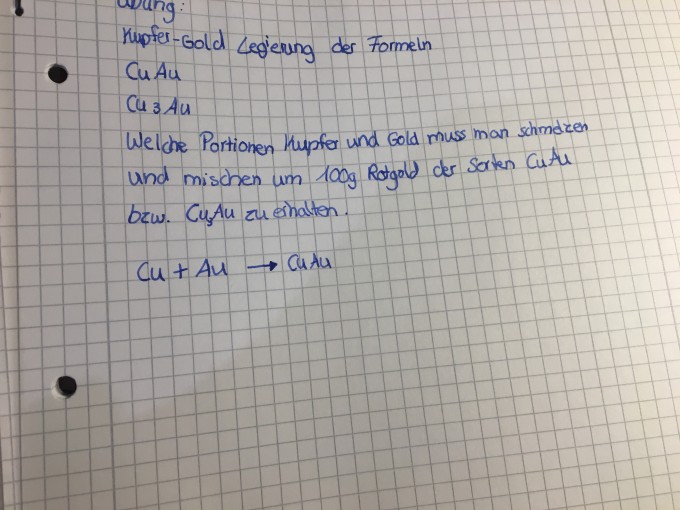 Übung:
Kupfer-Gold Legierung der Formeln
CuAu
Cu3Au
Welche Portionen Kupfer und Gold muss man schmelzen
und mischen um 100g Rotgold der Sorten CuAu
bzw. Cu3Au zu erhalten.
Cu + Au → CuAu